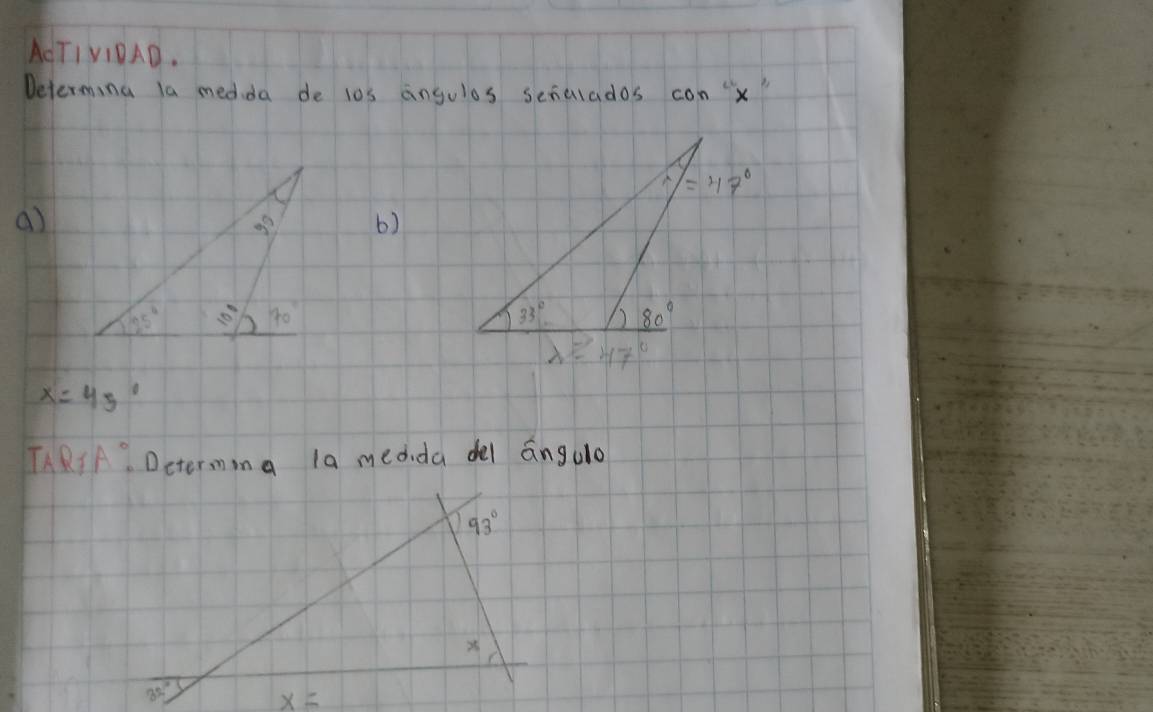 ACTIVIDAD.
Determina la medida de los ángulos señalados con "x"
= 47°
a)
b)
25°
70°
33°
80°
= 47°
x = 45°
TAREA: Determina la medida del ángulo
93°
x
32°
x =